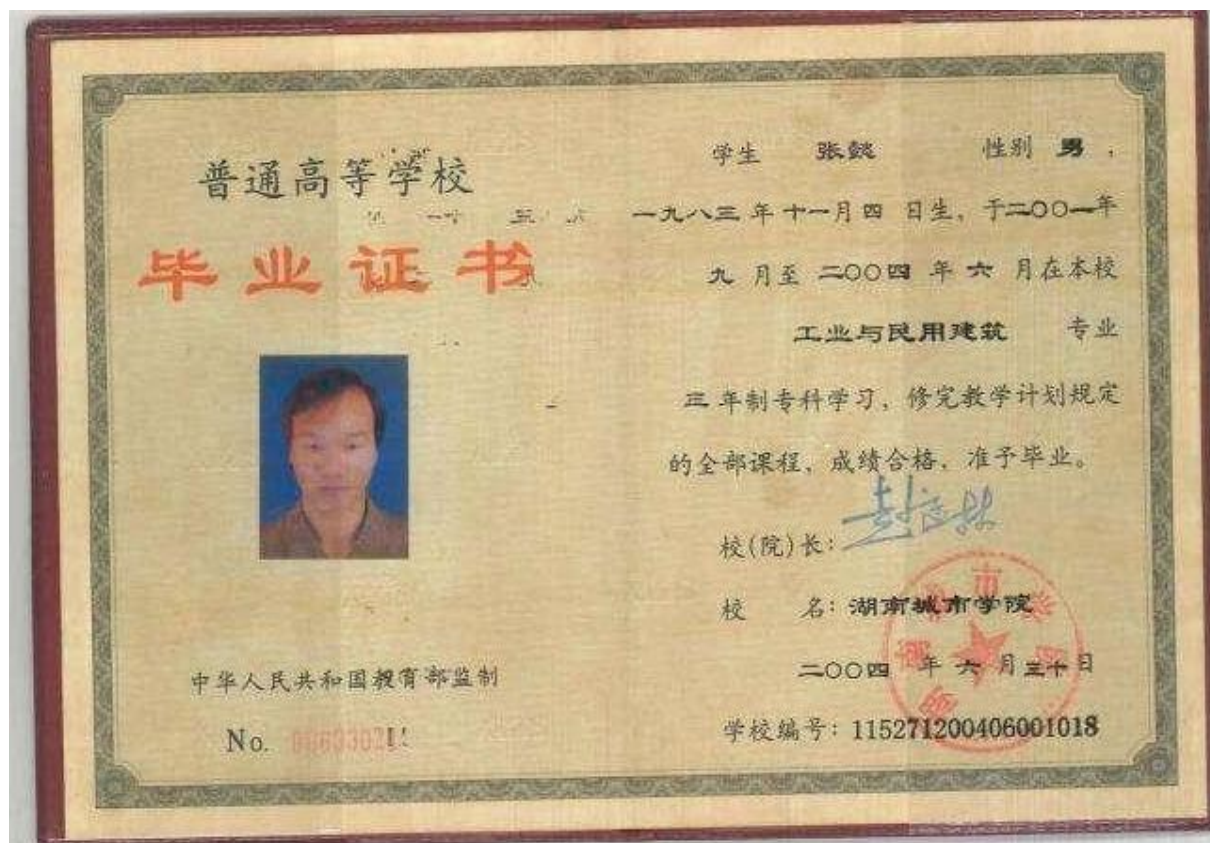 普通高等学校
毕业证书
中华人民共和国教育部监制
No.
学生 张懿 性别 男,
一九八三年十一月四日生, 于二〇〇一年
九月至二〇〇四年六月在本校
工业与民用建筑 专业
三年制专科学习, 修完教学计划规定
的全部课程, 成绩合格, 准予毕业。
校(院)长:
校 名: 湖南城市学院
二〇〇四年六月三十日
学校编号: 115271200406001018